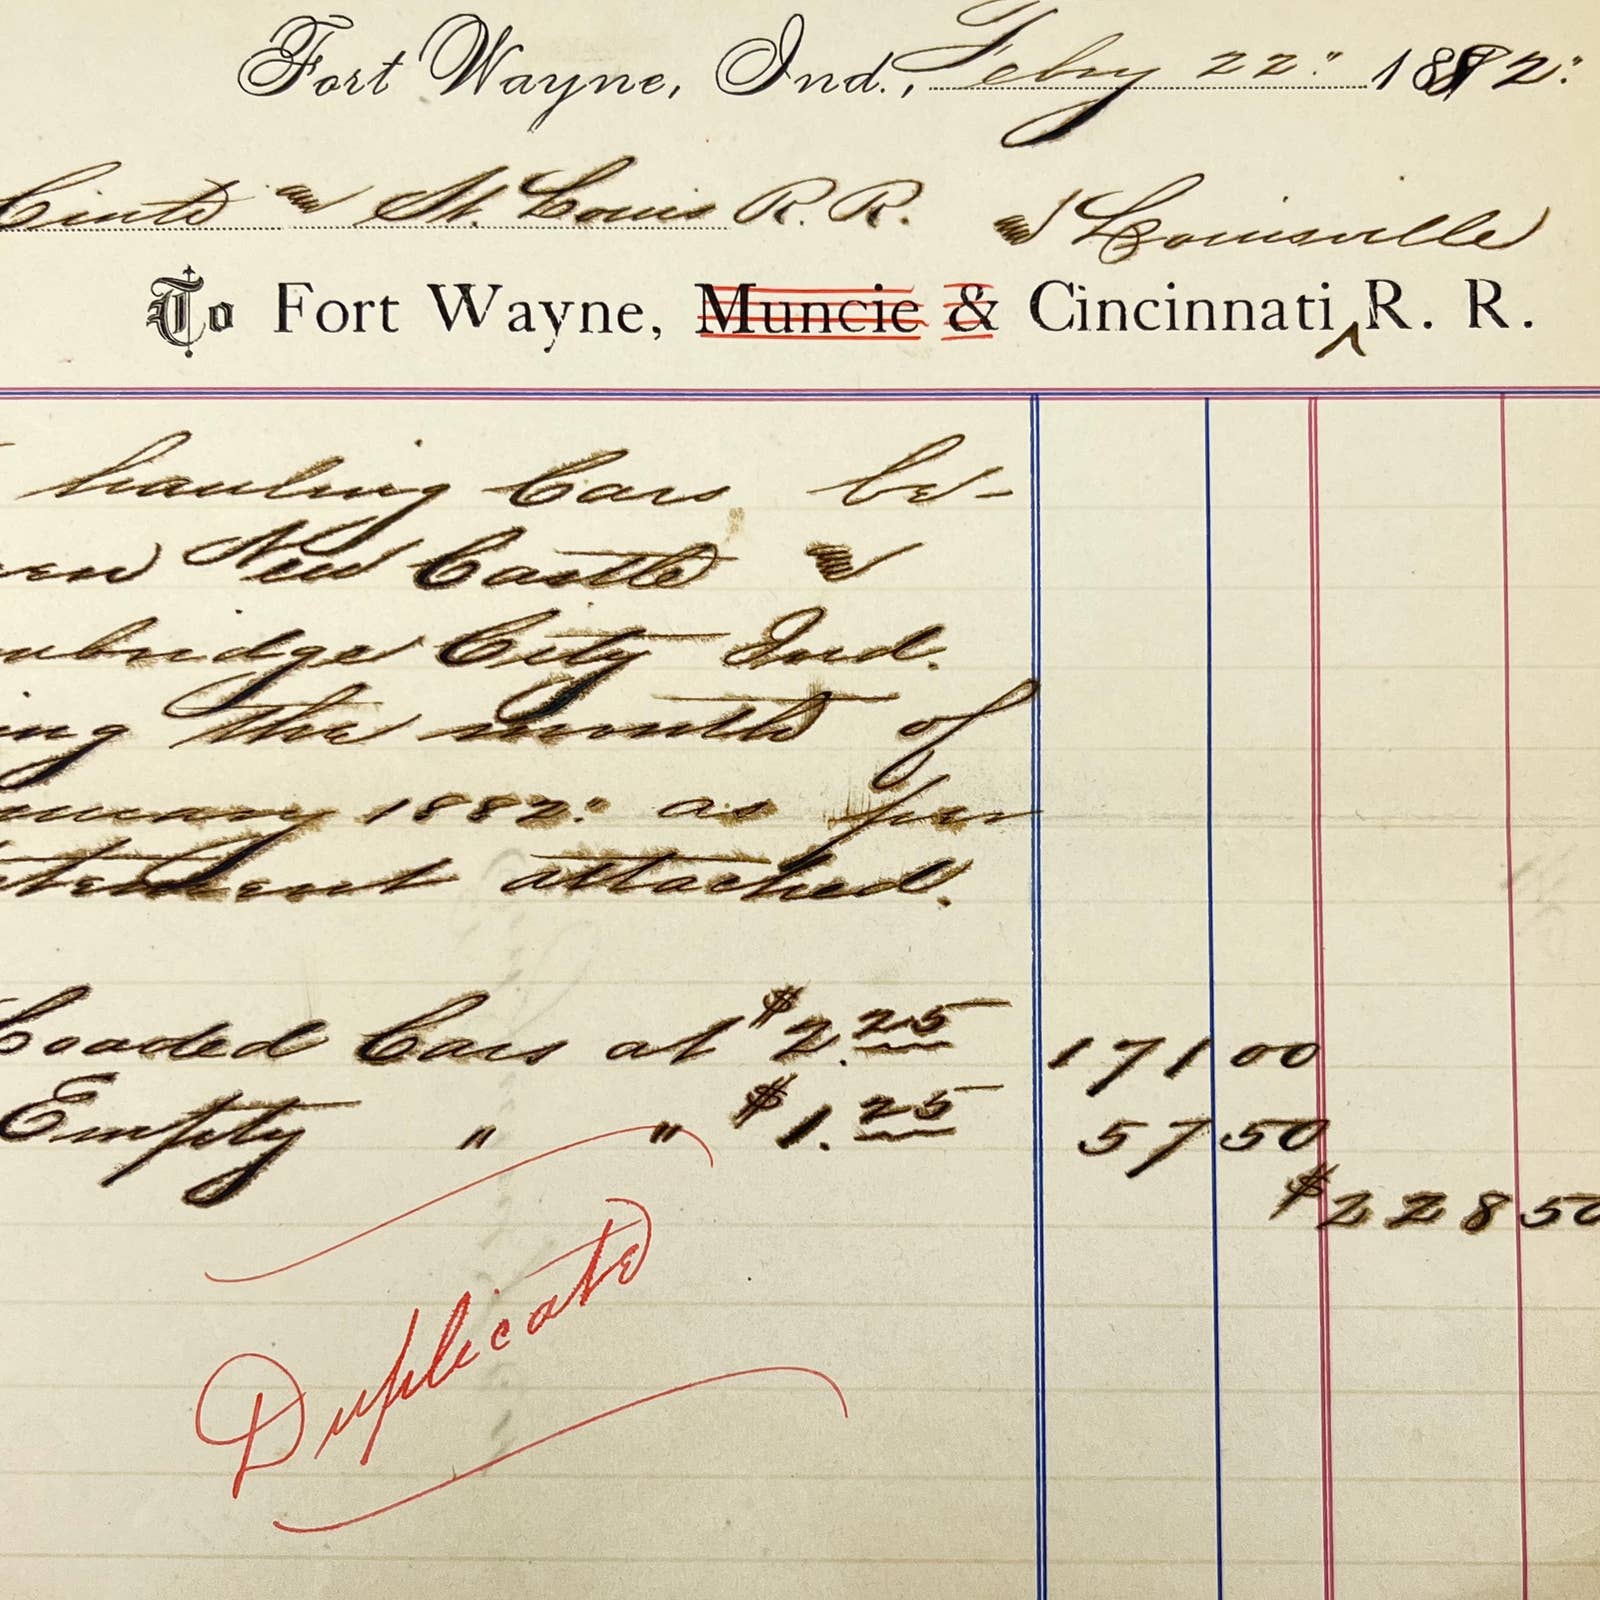 Fort Wayne, Ind., Feby 22" 1882"
Cinti & St. Louis R. R.
& Louisville
To Fort Wayne, Muncie & Cincinnati R. R.
hauling Cars be-
een New Castle &
mbridge City Ind.
ing the month of
anuary 1882" as per
atement attached.
Loaded Cars at $2.25 171 00
Empty " " $1.25 57 50
$228 50
Duplicate